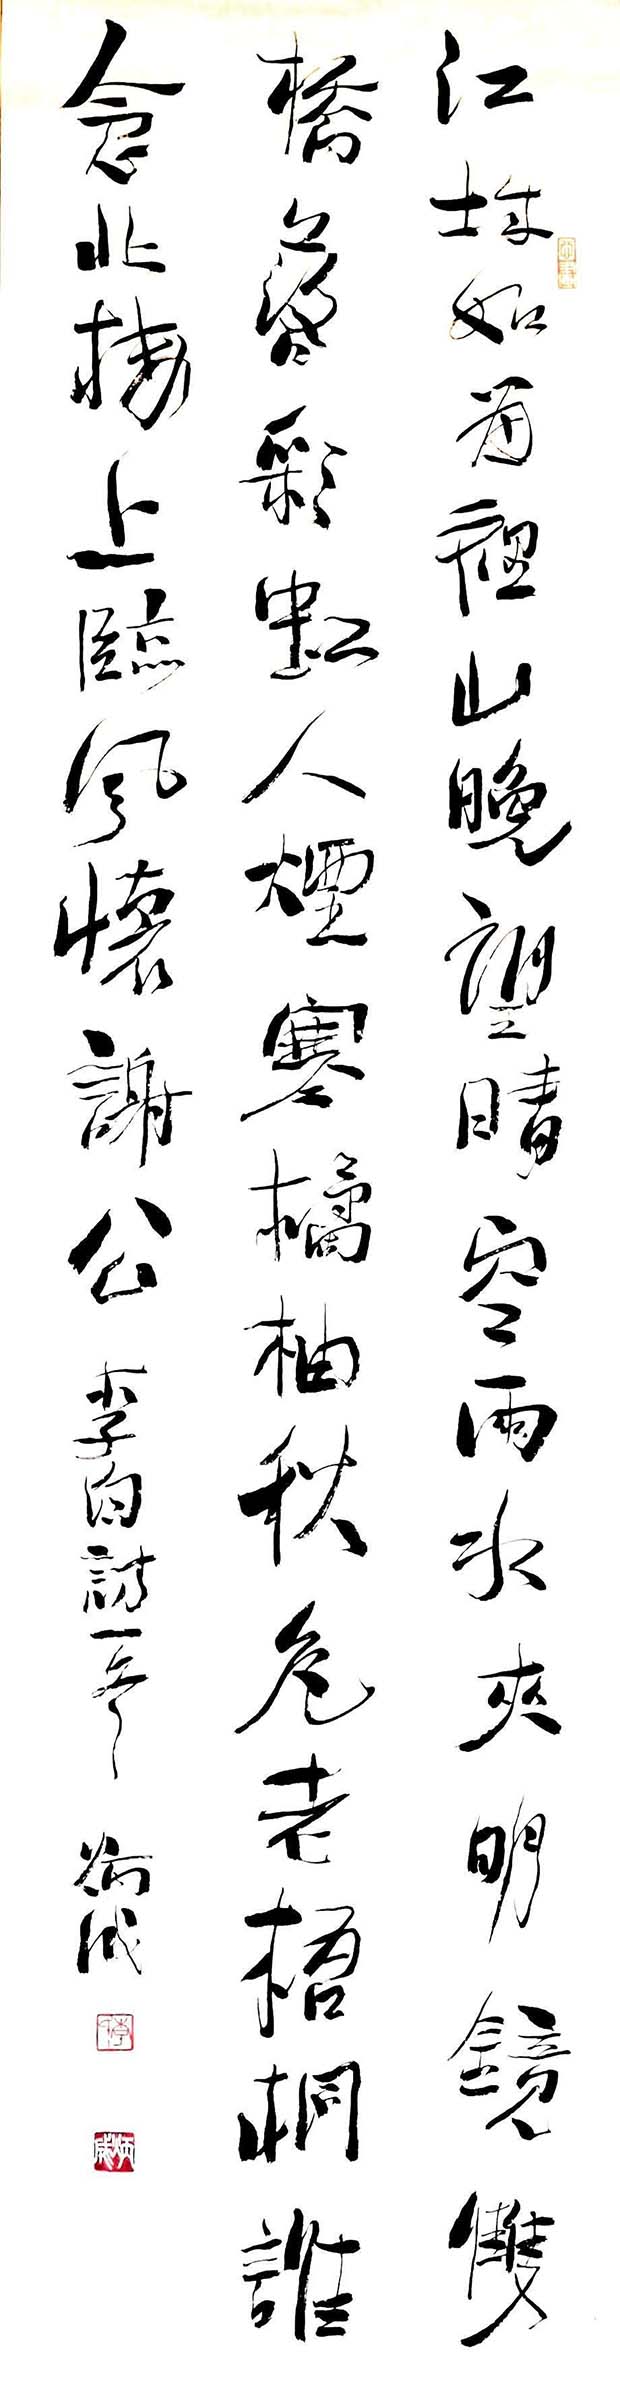 江城如畫裡山晚望晴空兩水夾明鏡雙
橋落彩虹人煙寒橘柚秋色老梧桐誰
念北樓上臨風懷謝公 李白詩一首 炳成